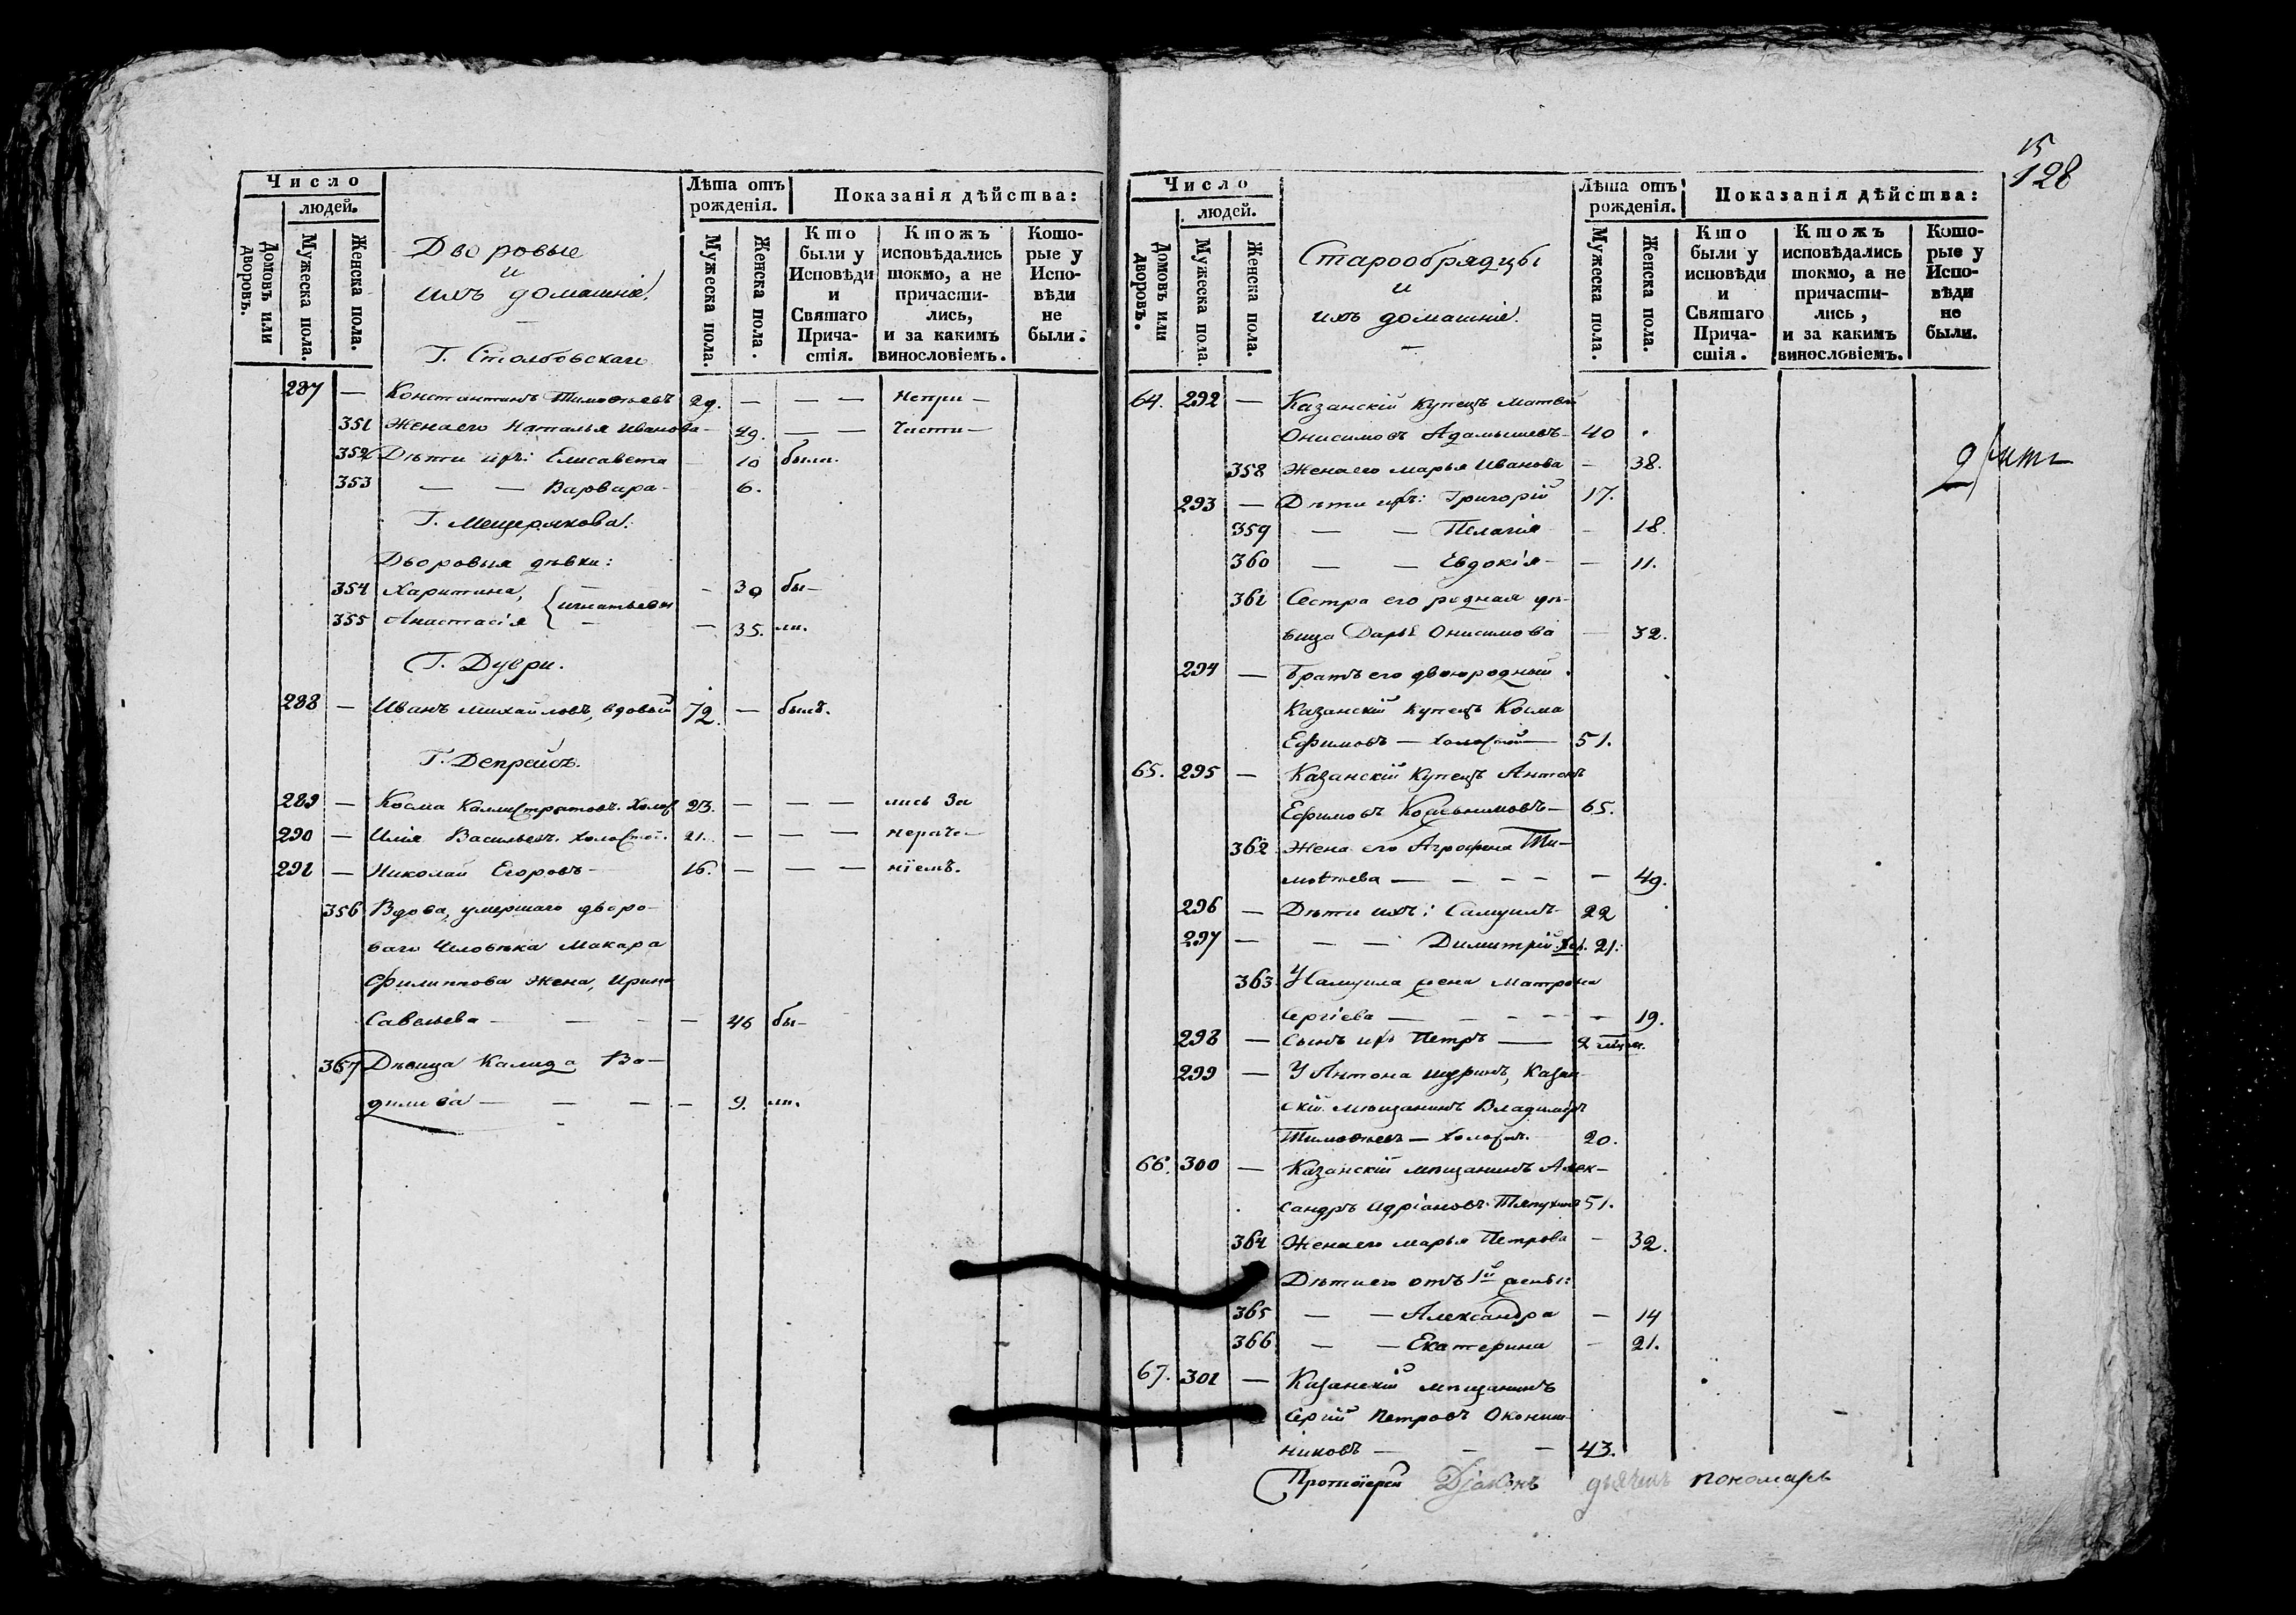 Число
людей.
Домовъ или дворовъ.
Мужеска пола.
Женска пола.
Дворовые
и
ихъ домашніе.
Г. Столбовскаго
Лѣта отъ рожденія.
Мужеска пола.
Женска пола.
Показанія дѣйства:
Кто были у Исповѣди и Святаго Причастія.
Ктожъ исповѣдались токмо, а не причастились, и за какимъ винословіемъ.
Которые у Исповѣди не были.
287 — Константинъ Тимоѳеевъ 29. — — — непри—
351 Жена его Наталья Иванова — 29. — — части—
352 Дѣти ихъ: Елисавета — 10 были.
353 — — Варвара — 6.
Г. Мещерякова:
Дворовыя дѣвки:
354 Харитина, { Игнатьевы — 30 бы—
355 Анастасія — 35. ли.
Г. Дуври.
288 — Иванъ Михайловъ, вдовый 72. — былъ.
Г. Депрейсъ.
289 — Косма Каллистратовъ. Холос. 23. — — — лись за
290 — Илія Васильевъ. холостой. 21. — — — нераче—
291 — Николай Егоровъ — 16. — — — ніемъ.
356 Вдова, умершаго дворо—
ваго человѣка Макара
Филиппова жена, Ирина
Савельева — — — — 46 бы—
357 Дѣвица Калида Ва—
дилива — — — — 9. ли.
15
128
Число
людей.
Домовъ или дворовъ.
Мужеска пола.
Женска пола.
Старообрядцы
и
ихъ домашніе.
Лѣта отъ рожденія.
Мужеска пола.
Женска пола.
Показанія дѣйства:
Кто были у исповѣди и Святаго Причастія.
Ктожъ исповѣдались токмо, а не причастились, и за какимъ винословіемъ.
Которые у Исповѣди не были.
64. 292 — Казанскій купецъ Матвей
Онисимовъ Адамышевъ — 40
358 Жена его Марья Иванова — 38.
293 — Дѣти ихъ: Григорій 17.
359 — — Пелагія — 18.
360 — — Евдокія — — 11.
361 Сестра его родная дѣ-
вица Дарья Онисимова — 32.
294 — Братъ его двоюродный
Казанскій купецъ Косма
Ефимовъ — холостой — 51.
65. 295 — Казанскій купецъ Антонъ
Ефимовъ — 65.
362 Жена его Агрофена Ти—
моѳеева — — — — — 49.
296 — Дѣти ихъ: Самуилъ — 22
297 — — — Димитрій хол. 21.
363 У Самуила жена Матрона
Сергіева — — — — — 19.
298 — Сынъ ихъ Петръ — 2 мѣся.
299 — У Антона шуринъ, Казан-
скій мѣщанинъ Владимиръ
Тимоѳеевъ — холост. 20.
66. 300 — Казанскій мѣщанинъ Алек—
сандръ Адріановъ Тяпухинъ 51.
364 Жена его Марья Петрова — 32.
Дѣти его отъ 1й жены:
365 — — Александра — 14
366 — — Екатерина — 21.
67. 301 — Казанскій мѣщанинъ
Сергій Петровъ Окониш-
никовъ — — — 43.
Протоіерей Діаконъ дьячекъ пономарь